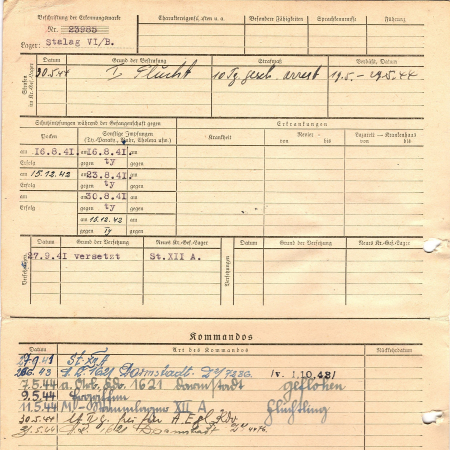 Beschriftung der Erkennungsmarke
Nr. 23985
Lager: Stalag VI/B.
Charaktereigensch. usw. u. s.
Besondere Fähigkeiten
Sprachkenntnisse
Führung
Strafen im Kr.-Gef.-Lager
Datum
Grund der Bestrafung
Strafmaß
Verbüßt, Datum
30.5.44
Flucht
10 Tg. gesch. arrest
19.5. – 29.5.44
Schutzimpfungen während der Gefangenschaft gegen
Erkrankungen
Pocken
Sonstige Impfungen
(Ty.-Paraty., Ruhr, Cholera usw.)
Krankheit
Revier
von bis
Lazarett – Krankenhaus
von bis
am 16.8.41. am 16.8.41.
Erfolg gegen ty gegen
am 15.12.42 am 23.8.41. am
Erfolg gegen ty gegen
am am 30.8.41 am
Erfolg gegen ty gegen
am 15.12.42 am
gegen Ty gegen
Versetzungen
Datum
Grund der Versetzung
Neues Kr.-Gef.-Lager
Datum
Grund der Versetzung
Neues Kr.-Gef.-Lager
27.9.41 versetzt St.XII A.
Kommandos
Datum
Art des Kommandos
Rückkehrdatum
27.9.41
1621 Darmstadt
/v. 1.10.43/
7.5.44 a. Arb. Kdo. 1621 Darmstadt geflohen
9.5.44
11.5.44 M.-Stammlager XII A Flüchtling
30.5.44
31.5.44 Darmstadt